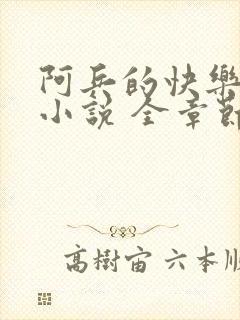 阿兵的快樂
小說 全章節
高樹宙 六本順